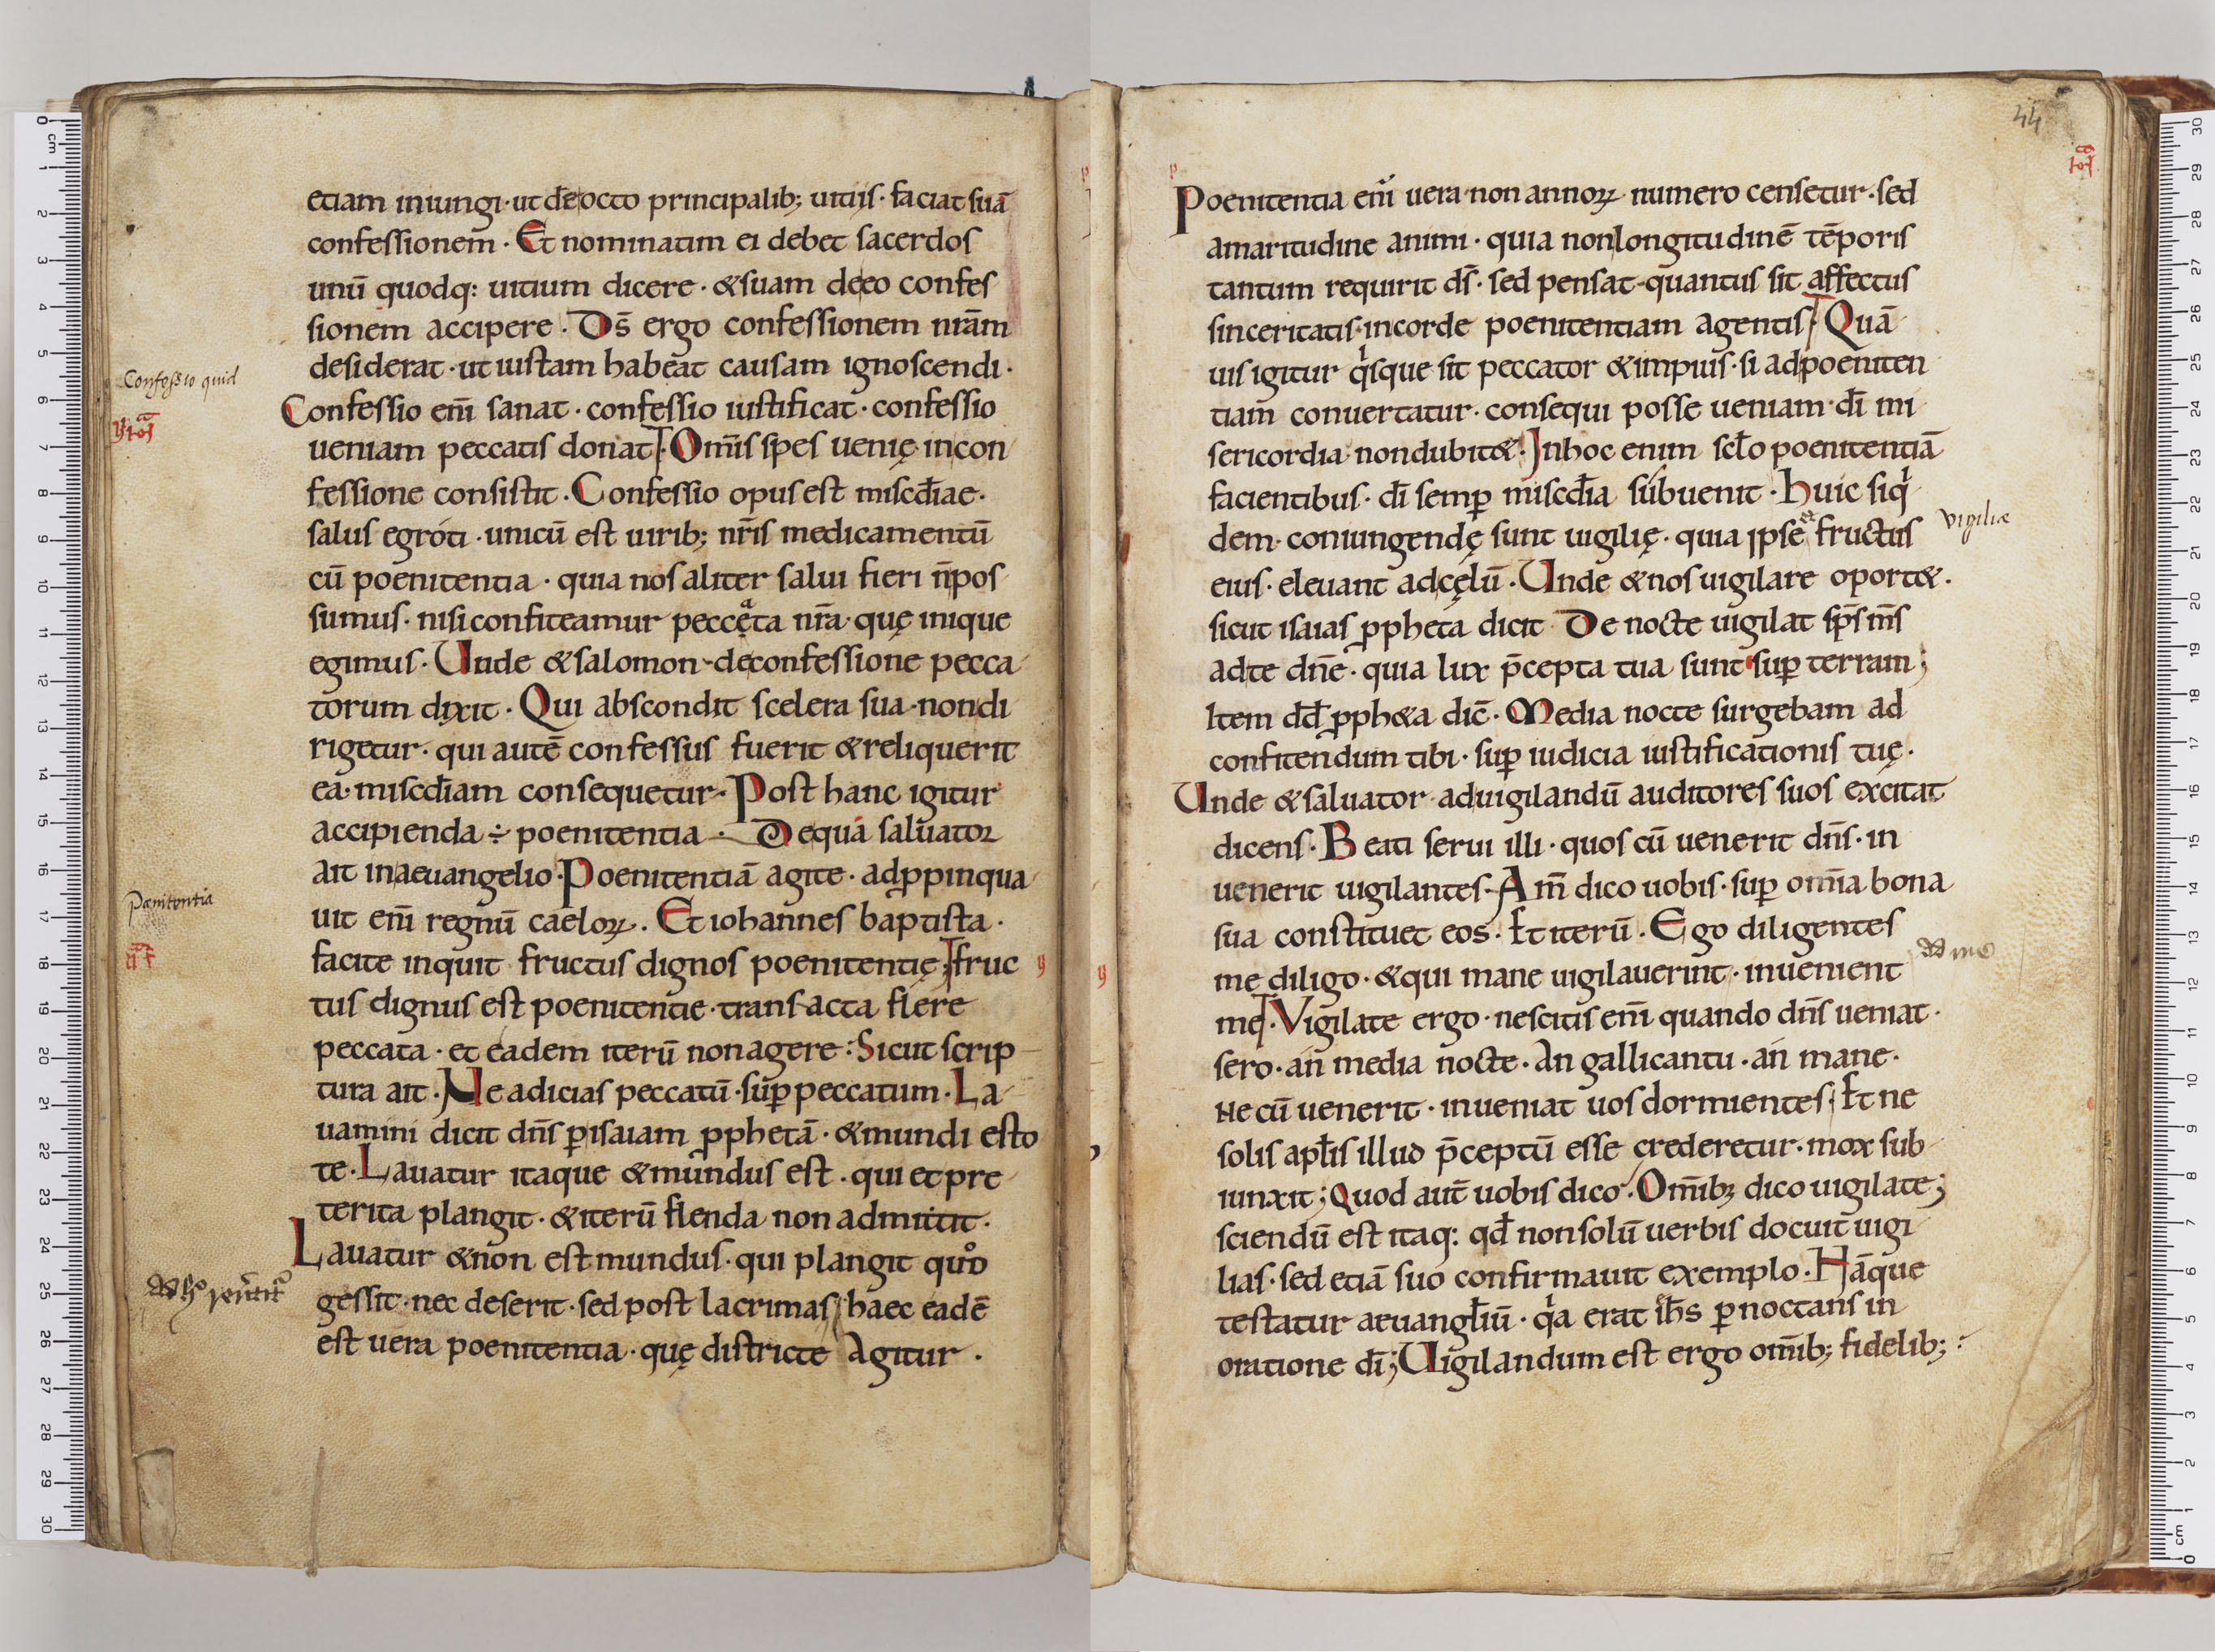 etiam iniungi · ut de octo principalib; uitijs · faciat suā
confessionem · Et nominatim ei debet sacerdos
unū quodq: uitium dicere · & suam de eo confes
sionem accipere · Ds̄ ergo confessionem nrām
desiderat · ut iustam habeat causam ignoscendi ·
Confessio quid
Confessio eni̅ sanat · confessio iustificat · confessio
ueniam peccatis donat · Om̅is spes uenię in con
fessione consistit · Confessio opus est misc̅diae ·
salus egroti · unicū est uirib; nr̅is medicamentū
cū poenitentia · quia nos aliter salui fieri n̅ pos
sumus · nisi confiteamur peccęta nr̅a · quę inique
egimus · Unde & salomon · de confessione pecca
torum dixit · Qui abscondit scelera sua · non di
rigetur · qui autē confessus fuerit & reliquerit
ea · misc̅diam consequetur · Post hanc igitur
accipienda ÷ poenitentia · De qua saluator
ait in aeuangelio · Poenitentiā agite · adp̱pinqua
Pænitentia
uit eni̅ regnū caeloꝝ · Et iohannes baptista ·
facite inquit fructus dignos poenitentię · fruc
tus dignus est poenitentie · transacta flere
peccata · et eadem iterū non agere : Sicut scrip
tura ait · Ne adicias peccatū · sup̱ peccatum · La
uamini dicit dn̅s p̱ isaiam p̱phetā · & mundi esto
te · Lauatur itaque & mundus est · qui et pre
terita plangit · & iterū flenda non admittit ·
Lauatur & non est mundus · qui plangit quod
gessit · nec deserit · sed post lacrimas / haec eadē
est uera poenitentia · quę districte Agitur ·
44
Poenitentia eni̅ uera non annoꝝ numero censetur · sed
amaritudine animi · quia non longitudinē tēporis
tantum requirit ds̄ · sed pensat quantus sit affectus
sinceritatis · in corde poenitentiam agentis · Quā
uis igitur qisque sit peccator & impius · si ad poeniten
tiam conuertatur · consequi posse ueniam · di̅ mi
sericordia non dubit& · In hoc enim sc̅lo poenitentiā
facientibus · di̅ semp̱ misc̅dia subuenit · Huic siqi
dem coniungendę sunt uigilię · quia ipse et fructus
vigiliæ
eius · eleuant ad cęlū · Unde & nos uigilare oport& ·
sicut isaias p̱pheta dicit De nocte uigilat sp̅s m̅s
ad te dn̅e · quia lux p̅cepta tua sunt sup̱ terram ;
Item dd̅ p̱ph&a dic̅ · Media nocte surgebam ad
confitendum tibi · sup̱ iudicia iustificationis tuę ·
Unde & saluator ad uigilandū auditores suos excitat
dicens · Beati serui illi · quos cū uenerit dn̅s · in
uenerit uigilantes · Am̅ dico uobis · sup̱ om̅ia bona
sua constituet eos · Et iterū · Ego diligentes
ad me
me diligo · & qui mane uigilauerint · inuenient
me · Vigilate ergo · nescitis eni̅ quando dn̅s ueniat ·
sero · an media nocte · An gallicantu · an mane ·
Ne cū uenerit · inueniat uos dormientes ; Et ne
solis apl̅is illud p̅ceptū esse crederetur · mox sub
iunxit ; Quod aut̅ uobis dico · Om̅ib; dico uigilate ;
sciendū est itaq: qd̅ non solū uerbis docuit uigi
lias · sed etiā suo confirmauit exemplo · Hāque
testatur aeuangl̅iū · qa erat ih̅s p̱noctans in
oratione di̅ ; Uigilandum est ergo om̅ib; fidelib; :